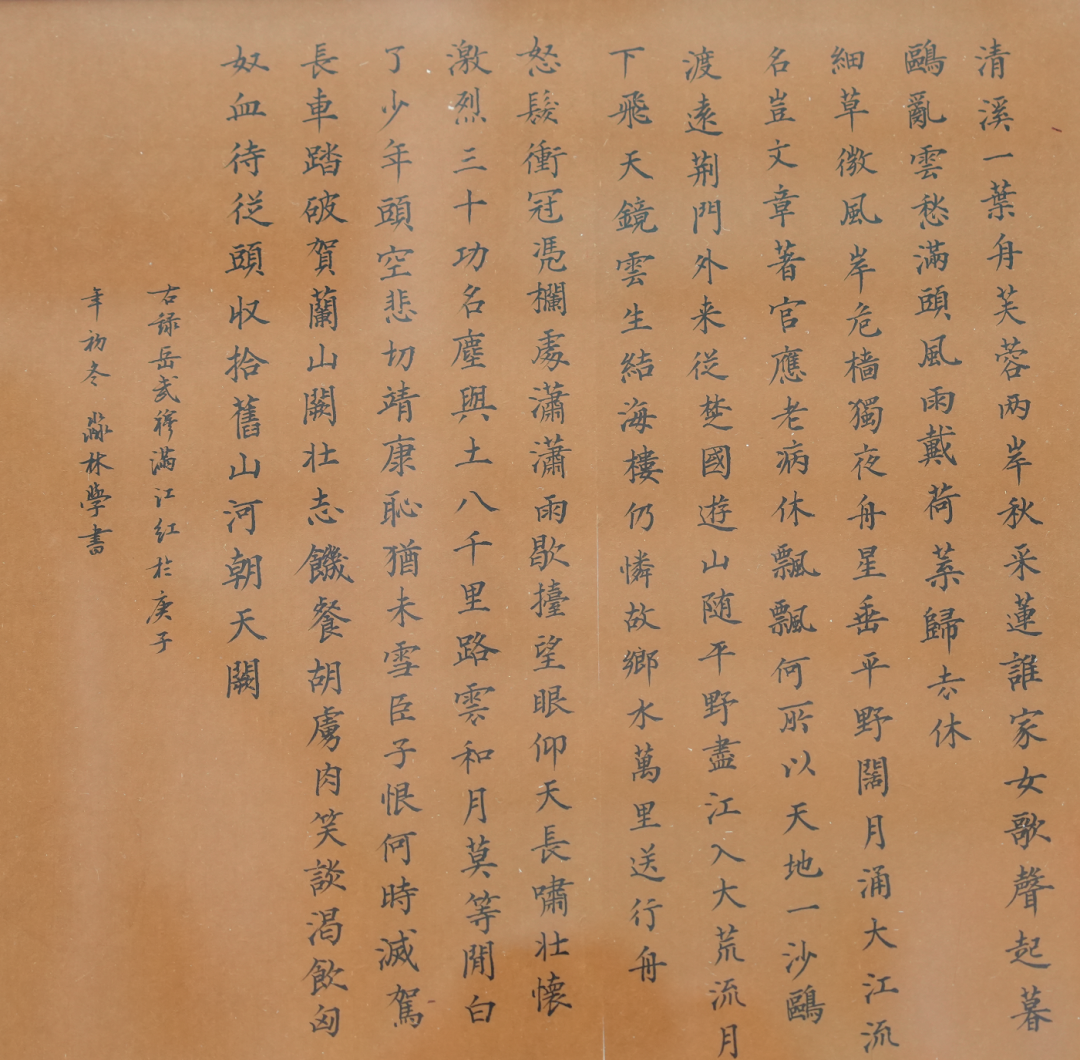 清溪一葉舟芙蓉两岸秋采蓮誰家女歌聲起暮
鷗亂雲愁滿頭風雨戴荷葉歸去休
細草微風岸危檣獨夜舟星垂平野闊月涌大江流
名豈文章著官應老病休飄飄何所以天地一沙鷗
渡遠荆門外来從楚國遊山随平野盡江入大荒流月
下飛天鏡雲生結海樓仍憐故鄉水萬里送行舟
怒髮衝冠凭欄處瀟瀟雨歇擡望眼仰天長嘯壮懷
激烈三十功名塵與土八千里路雲和月莫等閒白
了少年頭空悲切靖康恥猶未雪臣子恨何時滅駕
長車踏破賀蘭山闕壮志饑餐胡虜肉笑談渴飲匈
奴血待從頭収拾舊山河朝天闕
右録岳武穆滿江红於庚子
年初冬 淼林學書